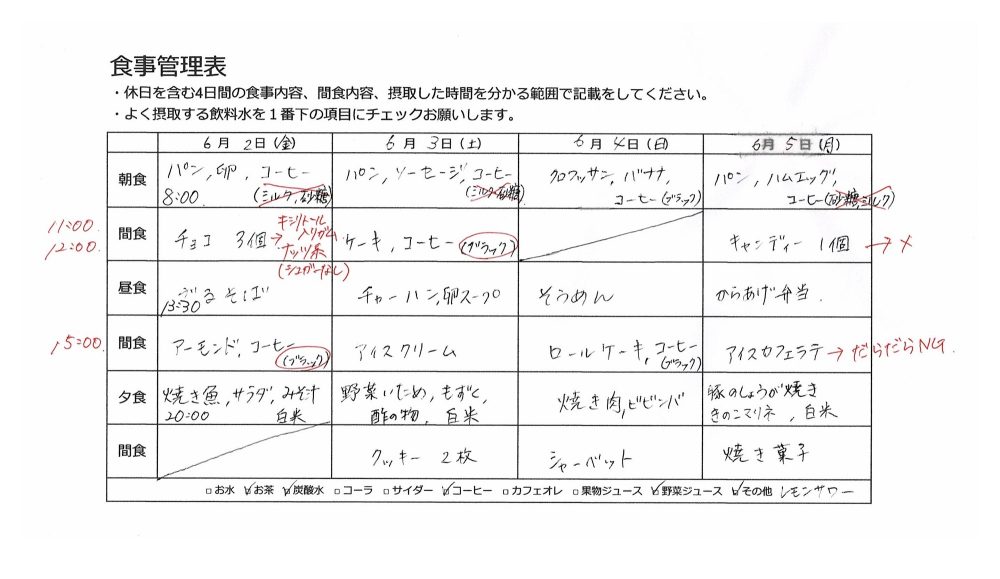 食事管理表
・休日を含む4日間の食事内容、間食内容、摂取した時間を分かる範囲で記載をしてください。
・よく摂取する飲料水を1番下の項目にチェックお願いします。
6月 2日(金) 6月 3日(土) 6月 4日(日) 6月 5日(月)
朝食
パン,卵, コーヒー
8:00 (ミルク,砂糖)
パン,ソーセージ,コーヒー
(ミルク砂糖)
クロワッサン, バナナ
コーヒー(ブラック)
パン, ハムエッグ,
コーヒー(砂糖,ミルク)
11:00
12:00
間食
チョコ 3個→
キシリトール
入りガム
ナッツ系
(シュガーなし)
ケーキ, コーヒー(ブラック)
キャンディー 1個 → ×
昼食
ざるそば
13:30
チャーハン,卵スープ
そうめん
からあげ弁当.
15:00
間食
アーモンド, コーヒー
(ブラック)
アイスクリーム
ロールケーキ, コーヒー
(ブラック)
アイスカフェラテ → だらだらNG.
夕食
焼き魚,サラダ,みそ汁
20:00 白米
野菜いため,もずく,
酢の物, 白米
焼き肉,ビビンバ
豚のしょうが焼き
きのこマリネ, 白米
間食
クッキー 2枚
シャーベット
焼き菓子
□お水 ☑お茶 ☑炭酸水 □コーラ □サイダー ☑コーヒー □カフェオレ □果物ジュース ☑野菜ジュース ☑その他 レモンサワー